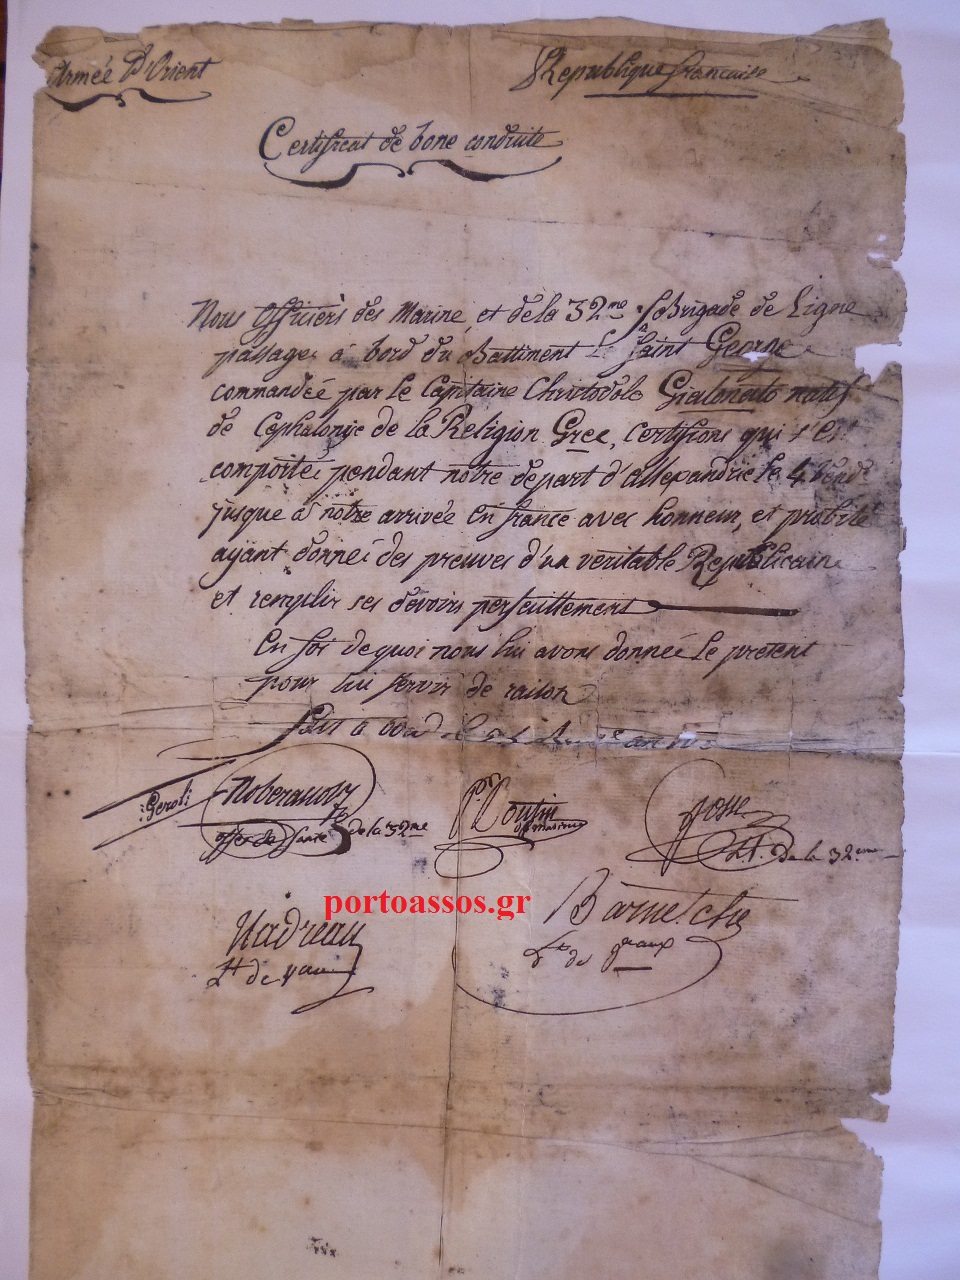 Armée D'Orient
Republique francaise
Certificat de bone conduite
Nous Officiers des Marine, et de la 32me ½ Brigade de Ligne
passager à bord du Battiment Le Saint George
commandée par le Capitaine Christodolo Gialonato natif
de Cephalonie de la Religion Grec, Certifions qui s'est
comportée pendant notre depart d'allexandrie le 4 Vende
jusque à notre arrivée En france avec honneur, et probité
ayant donneé des preuves d'un veritable Republicaine
et remplir ses devoirs perfeuttement
En foi de quoi nous lui avons donnée Le present
pour lui servir de raison
fait a an
offer de Santé de la 32me
Josse
Lt. de la 32eme
portoassos.gr
Nadreau
Lt de
Barnetche
Lt de